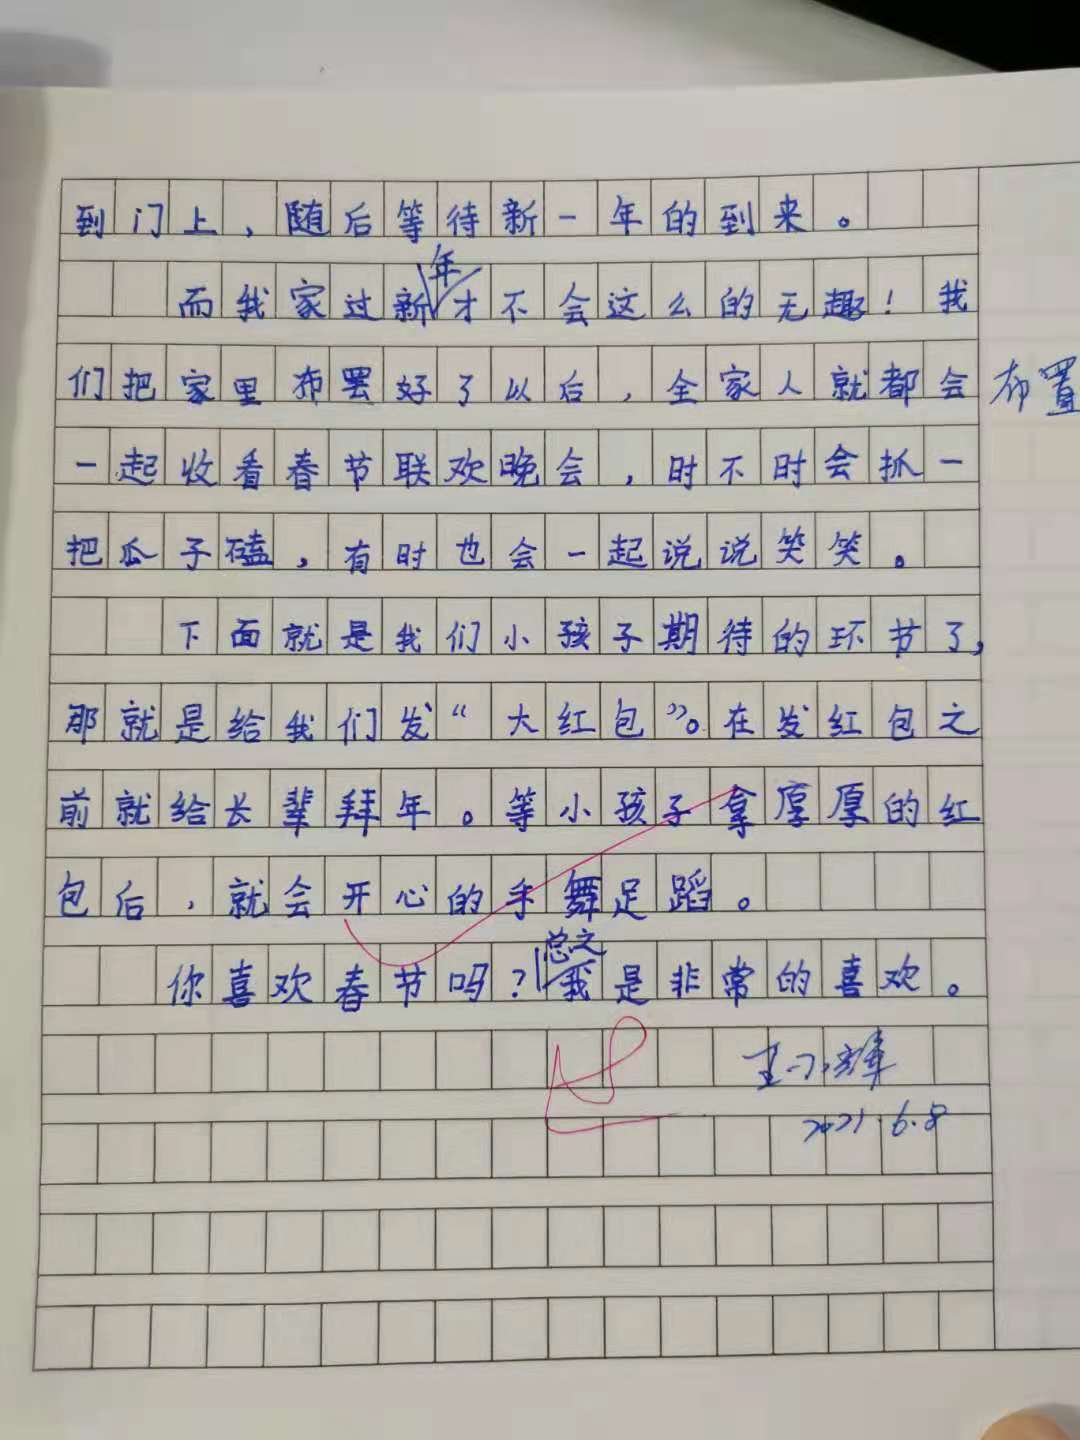 到门上，随后等待新一年的到来。
年
而我家过新才不会这么的无趣！我
们把家里布罢好了以后，全家人就都会
布置
一起收看春节联欢晚会，时不时会抓一
把瓜子磕，有时也会一起说说笑笑。
下面就是我们小孩子期待的环节了，
那就是给我们发“大红包”。在发红包之
前就给长辈拜年。等小孩子拿厚厚的红
包后，就会开心的手舞足蹈。
总之
你喜欢春节吗？我是非常的喜欢。
2021.6.8